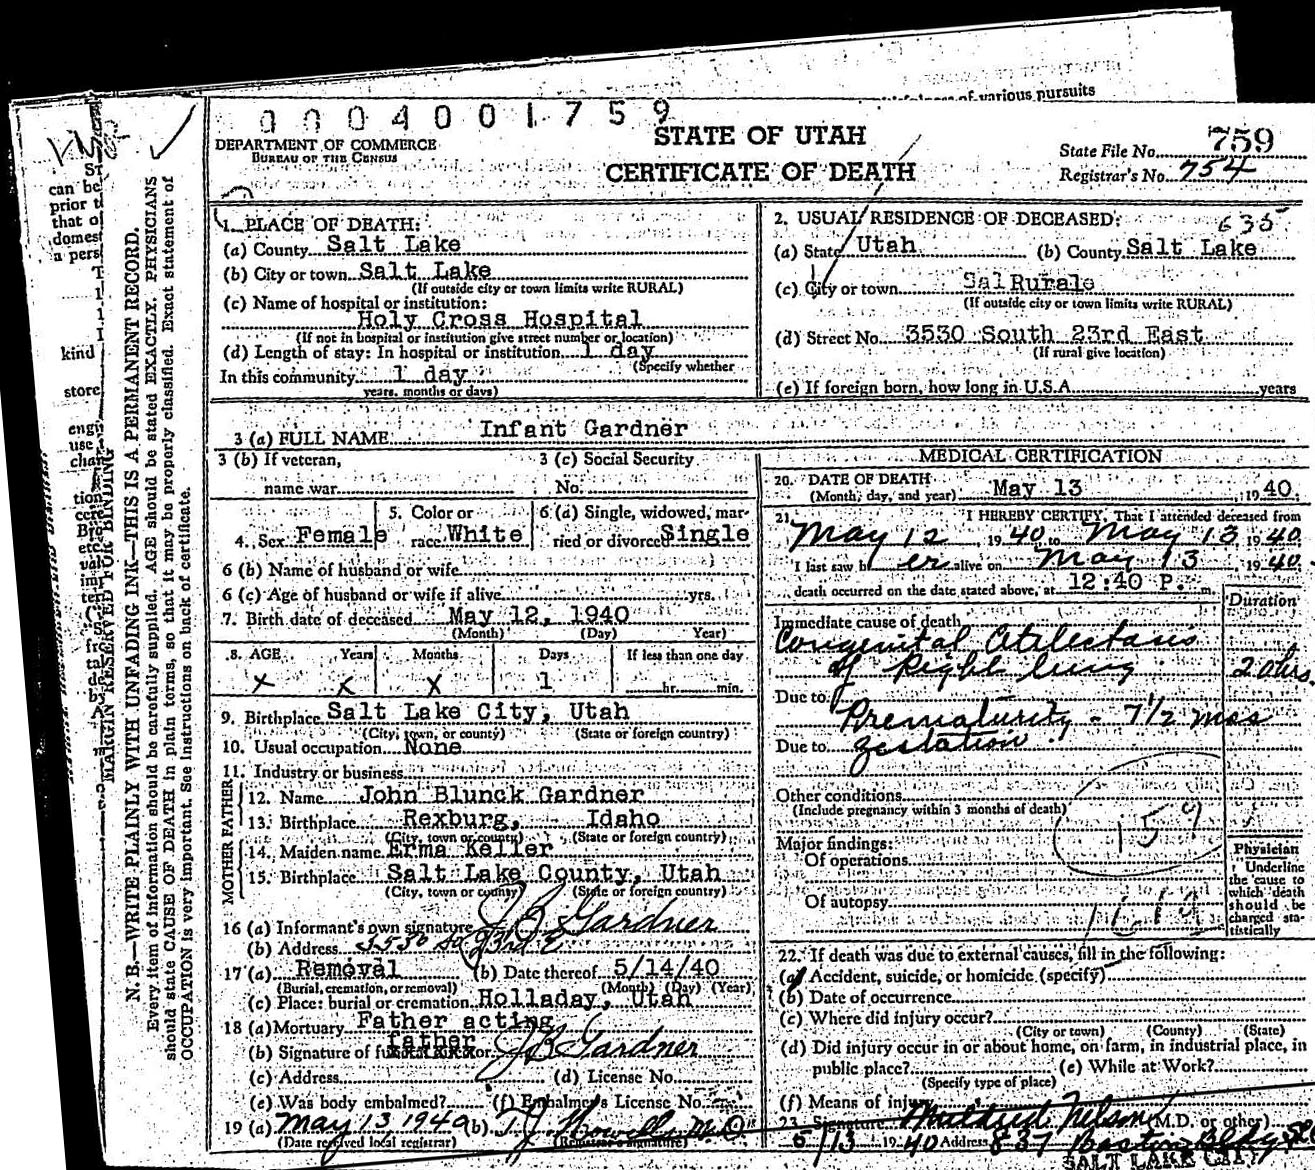 of various pursuits
0004001759
DEPARTMENT OF COMMERCE
BUREAU OF THE CENSUS
STATE OF UTAH
CERTIFICATE OF DEATH
State File No. 759
Registrar's No. 754
1. PLACE OF DEATH:
(a) County Salt Lake
(b) City or town Salt Lake
(If outside city or town limits write RURAL)
(c) Name of hospital or institution:
Holy Cross Hospital
(If not in hospital or institution give street number or location)
(d) Length of stay: In hospital or institution 1 day
(Specify whether
In this community 1 day
years, months or days)
2. USUAL RESIDENCE OF DECEASED: 635
(a) State Utah (b) County Salt Lake
(c) City or town Sal Rurale
(If outside city or town limits write RURAL)
(d) Street No. 3530 South 23rd East
(If rural give location)
(e) If foreign born, how long in U.S.A. years
3 (a) FULL NAME Infant Gardner
3 (b) If veteran,
name war
3 (c) Social Security
No.
4. Sex Female
5. Color or
race White
6 (a) Single, widowed, mar-
ried or divorced Single
6 (b) Name of husband or wife
6 (c) Age of husband or wife if alive yrs.
7. Birth date of deceased May 12, 1940
(Month) (Day) Year)
8. AGE Years Months Days If less than one day
X X X 1 hr. min.
9. Birthplace Salt Lake City, Utah
(City, town, or county) (State or foreign country)
10. Usual occupation None
11. Industry or business
FATHER
12. Name John Blunck Gardner
13. Birthplace Rexburg, Idaho
(City, town or county) (State or foreign country)
MOTHER
14. Maiden name Erma Keller
15. Birthplace Salt Lake County, Utah
(City, town or county) (State or foreign country)
16 (a) Informant's own signature J B Gardner
(b) Address 3530 So 23rd E
17 (a) Removal (b) Date thereof 5/14/40
(Burial, cremation, or removal) (Month) (Day) (Year)
(c) Place: burial or cremation Holladay, Utah
18 (a) Mortuary Father acting
father
(b) Signature of J B Gardner
(c) Address (d) License No.
(e) Was body embalmed? (f) Embalmer's License No.
19 (a) May 13 1940 (b) T. J. Howells M.D.
(Date received local registrar) (Registrar's signature)
MEDICAL CERTIFICATION
20. DATE OF DEATH
(Month, day, and year) May 13, 1940.
21. I HEREBY CERTIFY, That I attended deceased from
May 12, 1940, to May 13, 1940.
I last saw her alive on May 13, 1940.
death occurred on the date stated above, at 12:40 P. m.
Duration
Immediate cause of death
Congenital Atilectasis
of Right lung 20 hrs.
Due to
Prematurity - 7 1/2 mos
Due to gestation
Other conditions
(Include pregnancy within 3 months of death)
159
Major findings:
Of operations
Of autopsy
Physician
Underline
the cause to
which death
should be
charged sta-
tistically
22. If death was due to external causes, fill in the following:
(a) Accident, suicide, or homicide (specify)
(b) Date of occurrence
(c) Where did injury occur?
(City or town) (County) (State)
(d) Did injury occur in or about home, on farm, in industrial place, in
public place? (e) While at Work?
(Specify type of place)
(f) Means of injury
23. Signature Mildred Nelson (M.D. or other)
5/13 1940 Address 837 Boston Bldg
SALT LAKE CITY
MARGIN RESERVED FOR BINDING
N. B.—WRITE PLAINLY WITH UNFADING INK—THIS IS A PERMANENT RECORD.
Every item of information should be carefully supplied. AGE should be stated EXACTLY. PHYSICIANS
should state CAUSE OF DEATH in plain terms, so that it may be properly classified. Exact statement of
OCCUPATION is very important. See instructions on back of certificate.